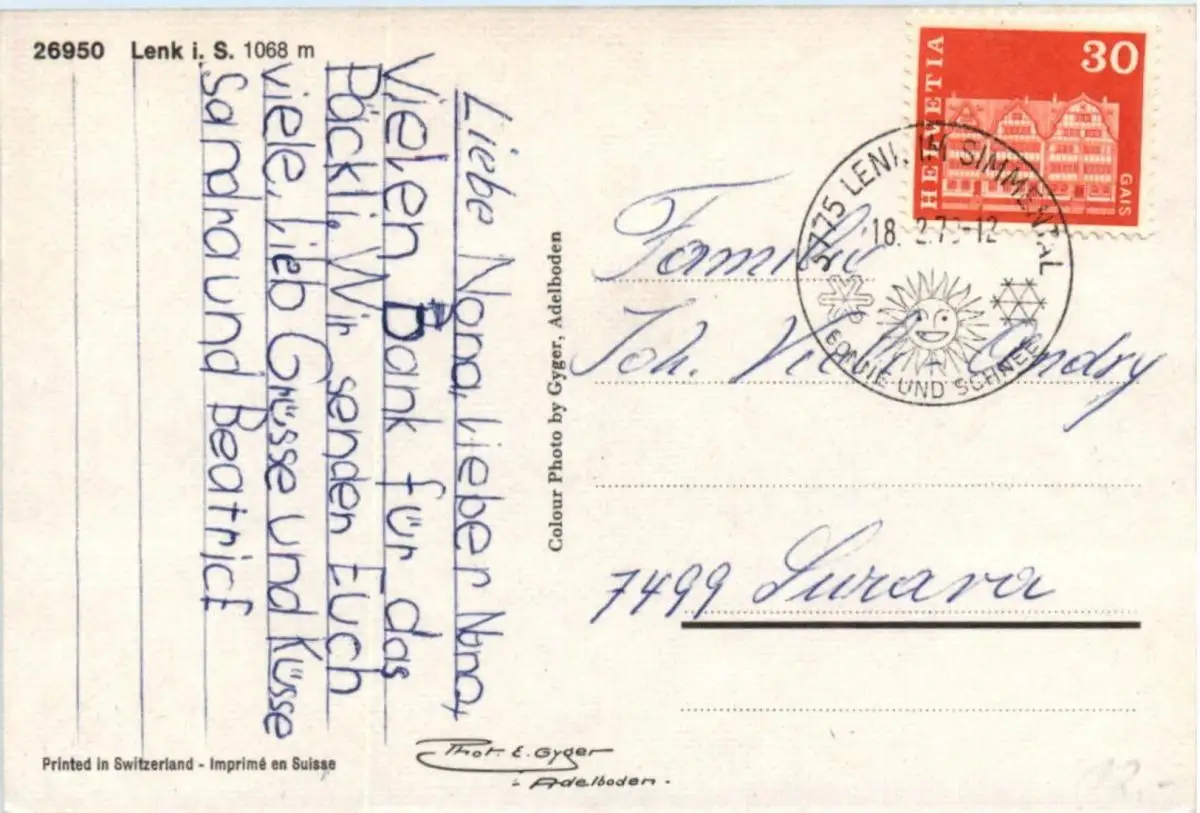 26950 Lenk i. S. 1068 m
Liebe Nona, lieber Nono,
Vielen Dank für das
Päckli, Wir senden EUch
viele, lieb Grüsse und Küsse
Sandra und Beatrice
Colour Photo by Gyger, Adelboden
Printed in Switzerland - Imprimé en Suisse
Phot. E. Gyger
Adelboden.
HELVETIA
30
GAIS
3775 LENK IM SIMMENTAL
18. 2.7 -12
SONNE UND SCHNEE
Familie
Joh. Andry
7499 Surava